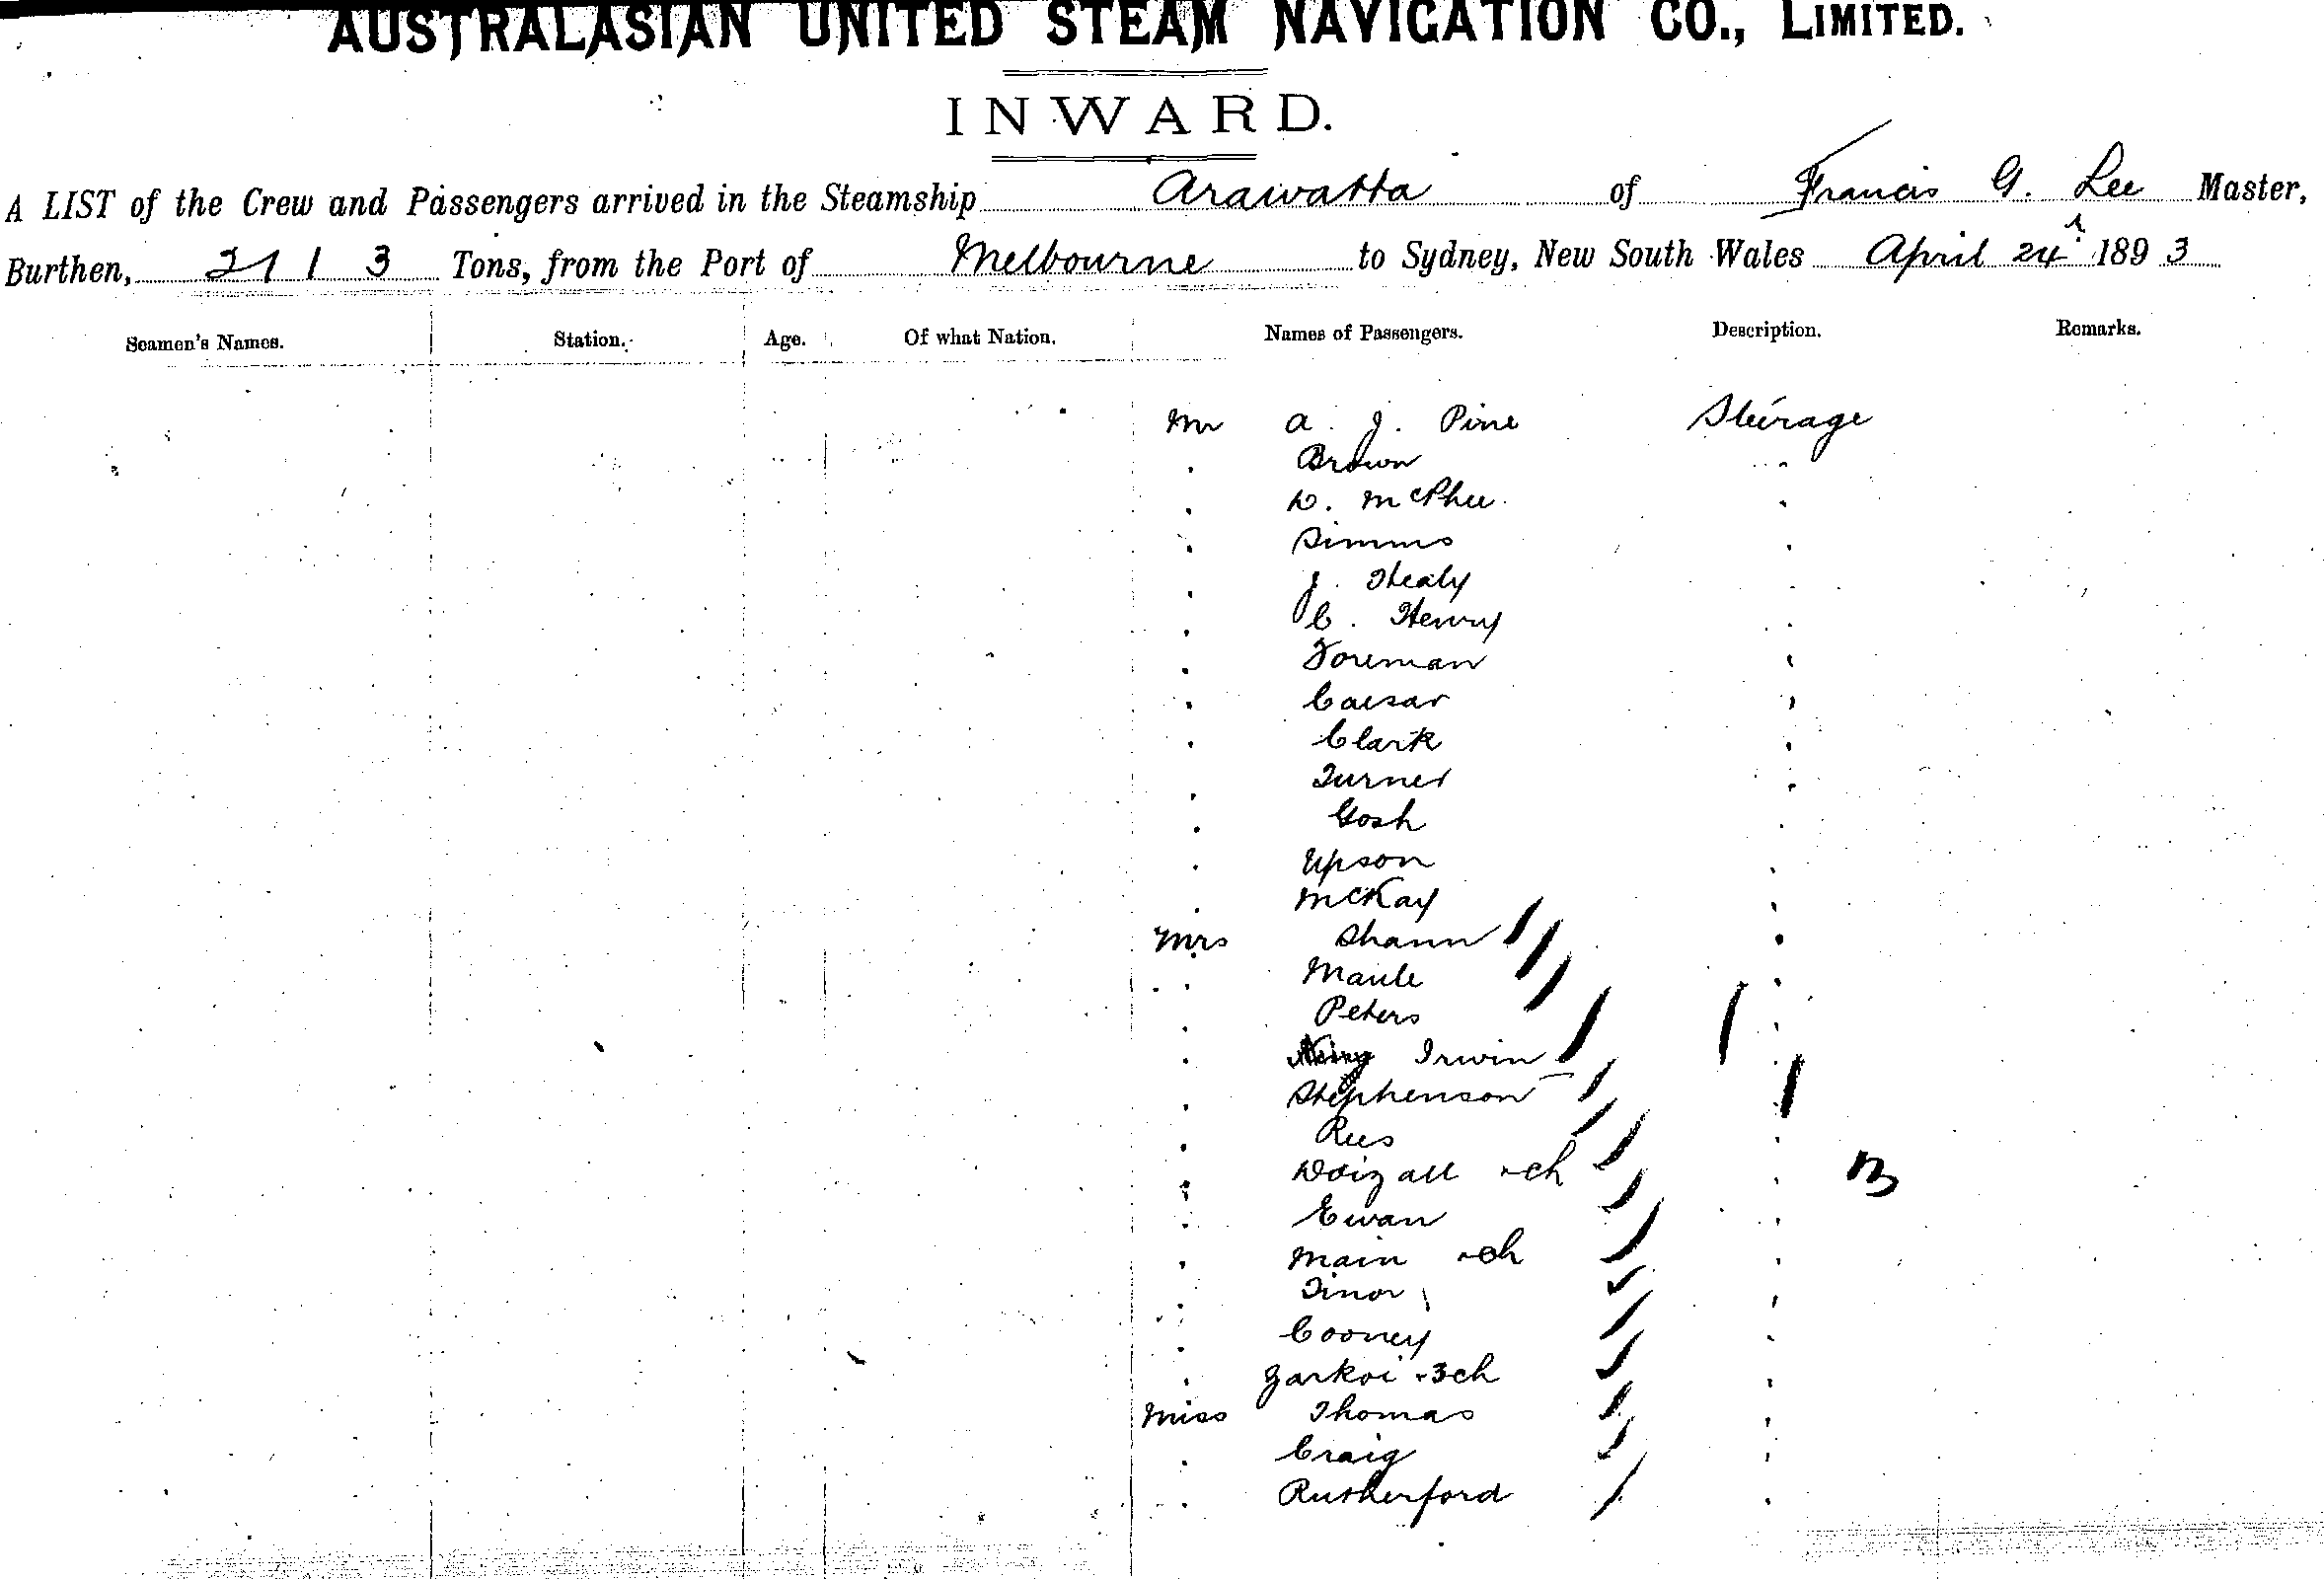 AUSTRALASIAN UNITED STEAM NAVIGATION CO., LIMITED.
INWARD.
A LIST of the Crew and Passengers arrived in the Steamship Arawatta of Francis G. Lee Master,
Burthen, 2113 Tons, from the Port of Melbourne to Sydney, New South Wales April 24th 1893
Seamen's Names. Station. Age. Of what Nation. Names of Passengers. Description. Remarks.
Mr A. J. Pine Steerage
Brown
D. McPhee
Simms
J. Healy
C. Henry
Foreman
Caesar
Clark
Turner
Gosh
Upson
McKay
Mrs Shann
Maule
Peters
Irwin
Stephenson
Rees
Doizall + ch
Ewan
Main + ch
Tinor
Cooney
Zarkoi + 3 ch
Miss Thomas
Craig
Rutherford